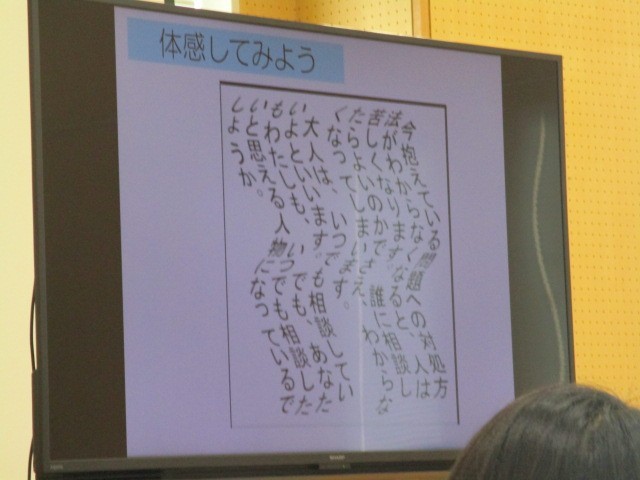 体感してみよう
今抱えている問題への対処方
法がわからなくなると、人は
苦しくなります。誰に相談し
たらよいのかでさえ、わからな
くなってしまいます。
大人は、いつでも相談してい
いよといいます。でも、あなた
もわたしも、いつでも相談した
いと思える人物になっているで
しょうか。